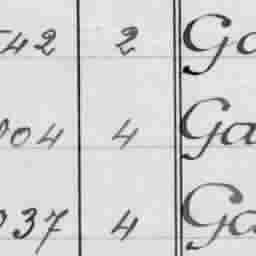 542 2 Ga
904 4 Ga
937 4 Ga